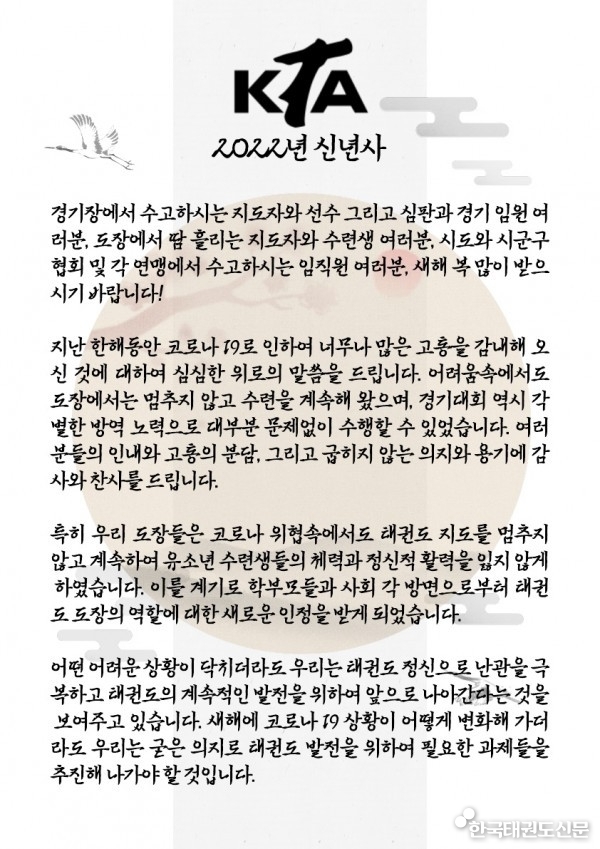 KTA
2022년 신년사
경기장에서 수고하시는 지도자와 선수 그리고 심판과 경기 임원 여
러분, 도장에서 땀 흘리는 지도자와 수련생 여러분, 시도와 시군구
협회 및 각 연맹에서 수고하시는 임직원 여러분, 새해 복 많이 받으
시기 바랍니다!
지난 한해동안 코로나 19로 인하여 너무나 많은 고통을 감내해 오
신 것에 대하여 심심한 위로의 말씀을 드립니다. 어려움속에서도
도장에서는 멈추지 않고 수련을 계속해 왔으며, 경기대회 역시 각
별한 방역 노력으로 대부분 문제없이 수행할 수 있었습니다. 여러
분들의 인내와 고통의 분담, 그리고 굽히지 않는 의지와 용기에 감
사와 찬사를 드립니다.
특히 우리 도장들은 코로나 위협속에서도 태권도 지도를 멈추지
않고 계속하여 유소년 수련생들의 체력과 정신적 활력을 잃지 않게
하였습니다. 이를 계기로 학부모들과 사회 각 방면으로부터 태권
도 도장의 역할에 대한 새로운 인정을 받게 되었습니다.
어떤 어려운 상황이 닥치더라도 우리는 태권도 정신으로 난관을 극
복하고 태권도의 계속적인 발전을 위하여 앞으로 나아간다는 것을
보여주고 있습니다. 새해에 코로나 19 상황이 어떻게 변화해 가더
라도 우리는 굳은 의지로 태권도 발전을 위하여 필요한 과제들을
추진해 나가야 할 것입니다.
한국태권도신문